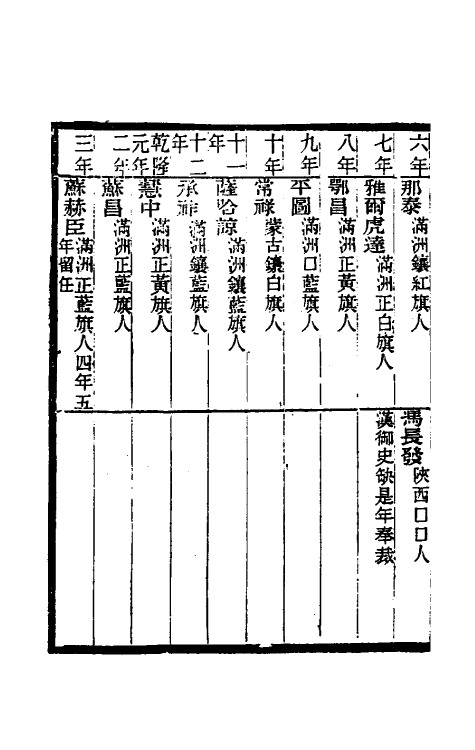 六年 那泰 滿洲鑲紅旗人 馮長發 陝西口口人
七年 雅爾虎達 滿洲正白旗人 漢御史缺是年奉裁
八年 鄂昌 滿洲正黃旗人
九年 平圖 滿洲口藍旗人
十年 常祿 蒙古鑲白旗人
十一年 薩哈諒 滿洲鑲藍旗人
十二年 滿洲鑲藍旗人
乾隆元年 慧中 滿洲正黃旗人
二年 蘇昌 滿洲正藍旗人
三年 蘇赫臣 滿洲正藍旗人四年五年留任